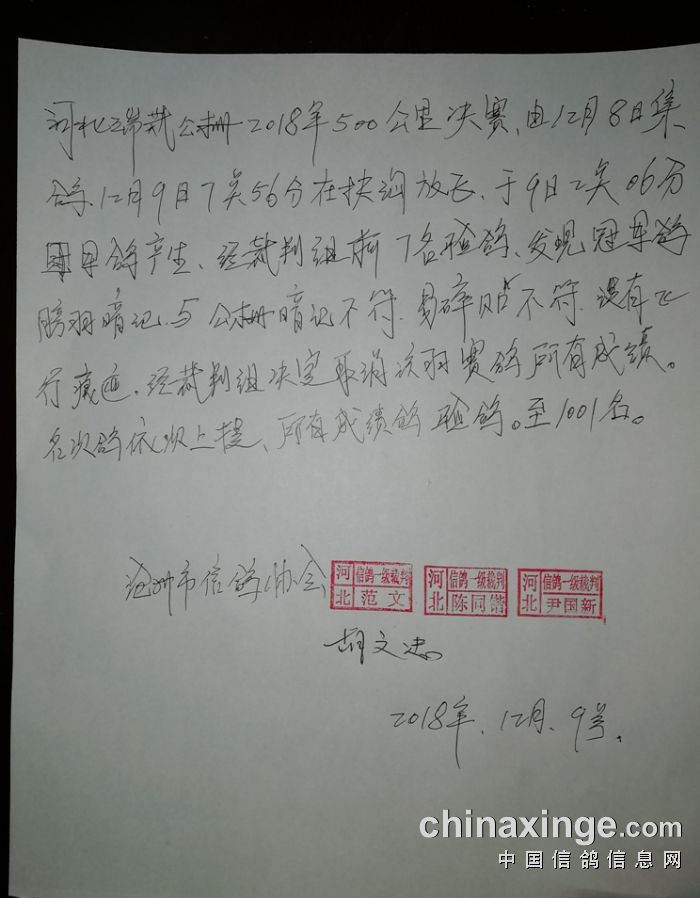 河北瑞哉公棚2018年500公里决赛,由12月8日集
鸽.12月9日7点56分在扶沟放飞.于9日2点06分
冠军鸽产生、经裁判组前7名验鸽、发现冠军鸽
膀羽暗记与公棚暗记不符.易碎贴不符.没有飞
行痕迹.经裁判组决定取消该羽赛鸽所有成绩。
名次鸽依次上提、所有成绩鸽验鸽。至1001名。
沧州市信鸽协会
河北 信鸽一级裁判 范文
河北 信鸽一级裁判 陈同锴
河北 信鸽一级裁判 尹国新
胡文忠
2018年.12月.9号.
chinaxinge.com
中国信鸽信息网